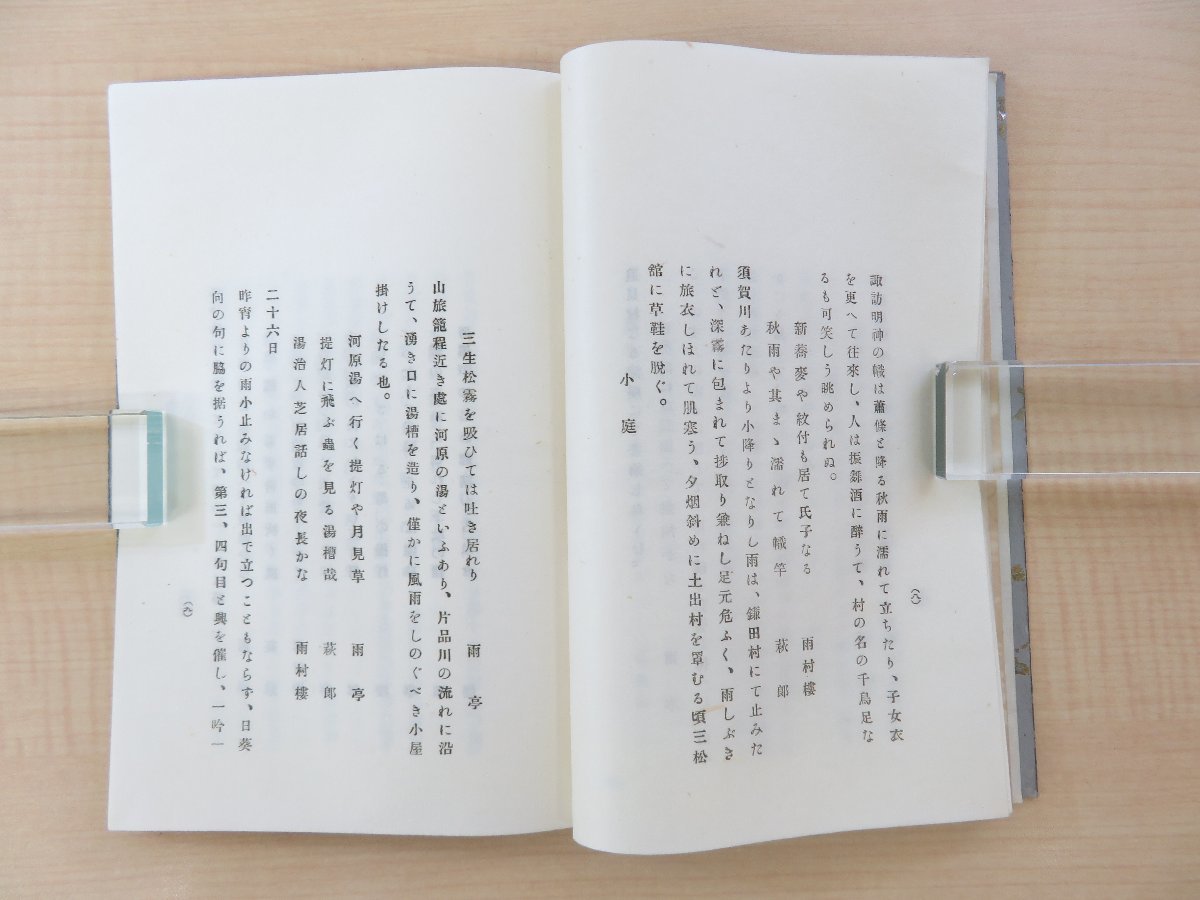 諏訪明神の幟は蕭條と降る秋雨に濡れて立ちたり、子女衣
を更へて往來し、人は振舞酒に醉うて、村の名の千鳥足な
るも可笑しう眺められぬ。
新蕎麥や紋付も居て氏子なる　雨村樓
秋雨や其まゝ濡れて幟竿　萩郎
須賀川あたりより小降りとなりし雨は、鎌田村にて止みた
れど、深霧に包まれて捗取り兼ねし足元危ふく、雨しぶき
に旅衣しほれて肌寒う、夕烟斜めに土出村を罩むる頃三松
舘に草鞋を脫ぐ。
小庭
（八）
三生松霧を吸ひては吐き居れり　雨亭
山旅籠程近き處に河原の湯といふあり、片品川の流れに沿
うて、湧き口に湯槽を造り、僅かに風雨をしのぐべき小屋
掛けしたる也。
河原湯へ行く提灯や月見草　雨亭
提灯に飛ぶ蟲を見る湯槽哉　萩郎
湯治人芝居話しの夜長かな　雨村樓
二十六日
昨宵よりの雨小止みなければ出で立つこともならず、日葵
向の句に脇を据うれば、第三、四句目と興を催し、一吟一
（九）